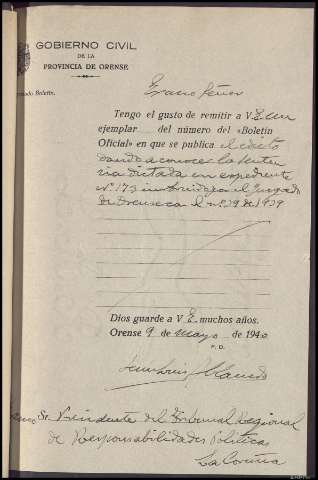 GOBIERNO CIVIL
DE LA
PROVINCIA DE ORENSE
Boletín.
Excmo Señor
Tengo el gusto de remitir a V. E. un
ejemplar del número del «Boletín
Oficial» en que se publica el edicto
dando a conocer la senten
cia dictada en expediente
Nº 173 instruido por el Juzgado
de Orense con el nº 29 de 1939
Dios guarde a V. E. muchos años.
Orense 9 de Mayo de 1940
P. D.
Excmo Sr. Presidente del Tribunal Regional
de Responsabilidades Políticas
La Coruña